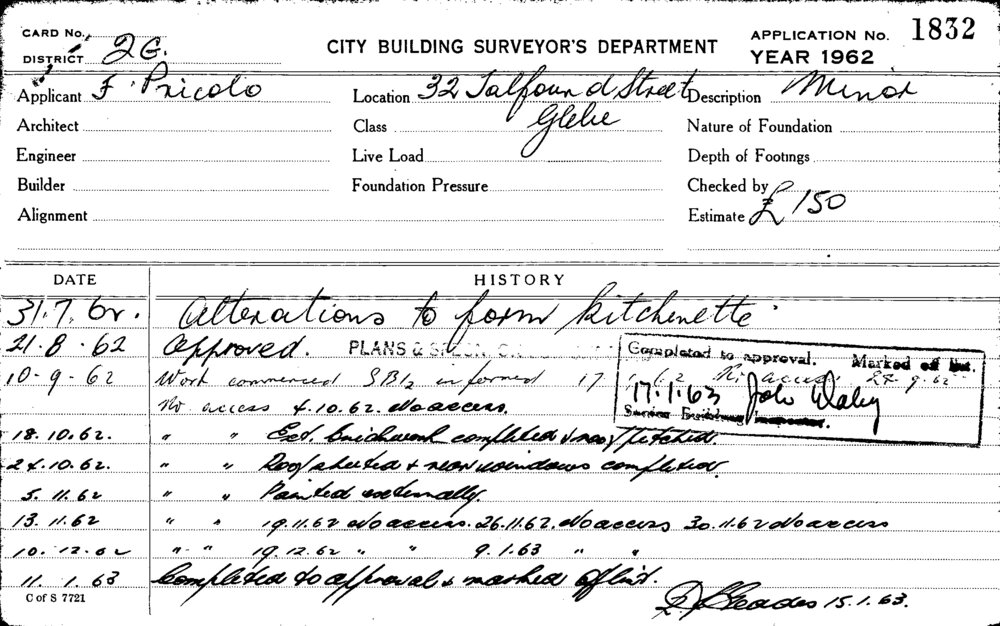 CARD No.
DISTRICT 2G.
CITY BUILDING SURVEYOR'S DEPARTMENT
APPLICATION No. 1832
YEAR 1962
Applicant F. Pricolo
Location 32 Talfourd Street
Glebe
Description Minor
Architect
Class
Nature of Foundation
Engineer
Live Load
Depth of Footings
Builder
Foundation Pressure
Checked by
Alignment
Estimate £150
DATE HISTORY
31.7.62. Alterations to form kitchenette
21.8.62 Approved. PLANS &
Completed to approval. Marked off list.
10-9-62 Work commenced informed 17 62 No access 24.9.62
17.1.63 John
No access 4.10.62. No access.
18.10.62. " " Ext. brickwork completed & roof pitched.
24.10.62. " " Roof sheeted & rear windows completed.
5.11.62 " " Painted externally.
13.11.62 " " 19.11.62 No access. 26.11.62. No access 30.11.62 No access
10.12.62 " " 19.12.62 " " 9.1.63 " "
11.1.63 Completed to approval & marked off list.
15.1.63.
C of S 7721